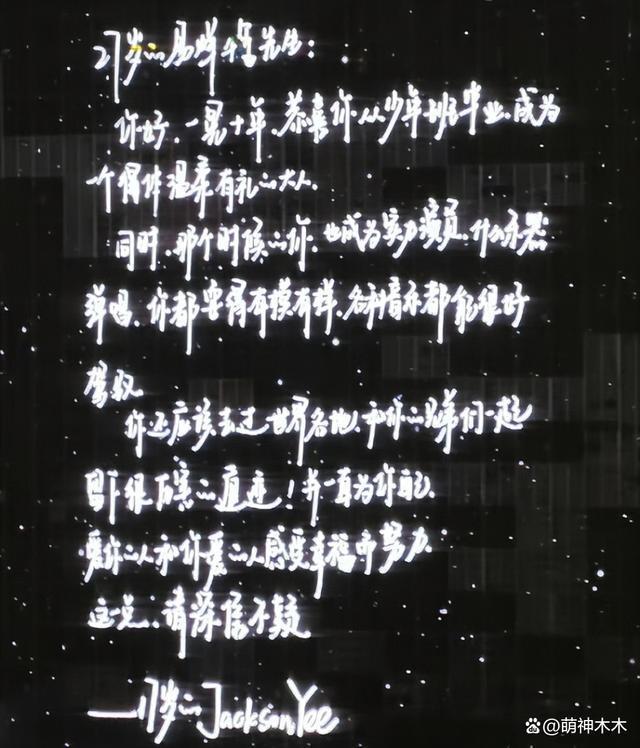 27岁的易烊千玺先生：
你好，一晃十年，恭喜你从少年班毕业，成为
一个得体温柔有礼的大人，
同时，那个时候的你，也成为实力演员，什么乐器
弹唱，你都耍得有模有样，各种音乐都能很好
驾驭，
你还应该去过世界各地，和你的兄弟们一起
留下很厉害的真迹！并一直为你自己，
爱你的人和你爱的人感受幸福而努力，
这一点，请深信不疑
——17岁的Jackson Yee
百家号/萌神木木